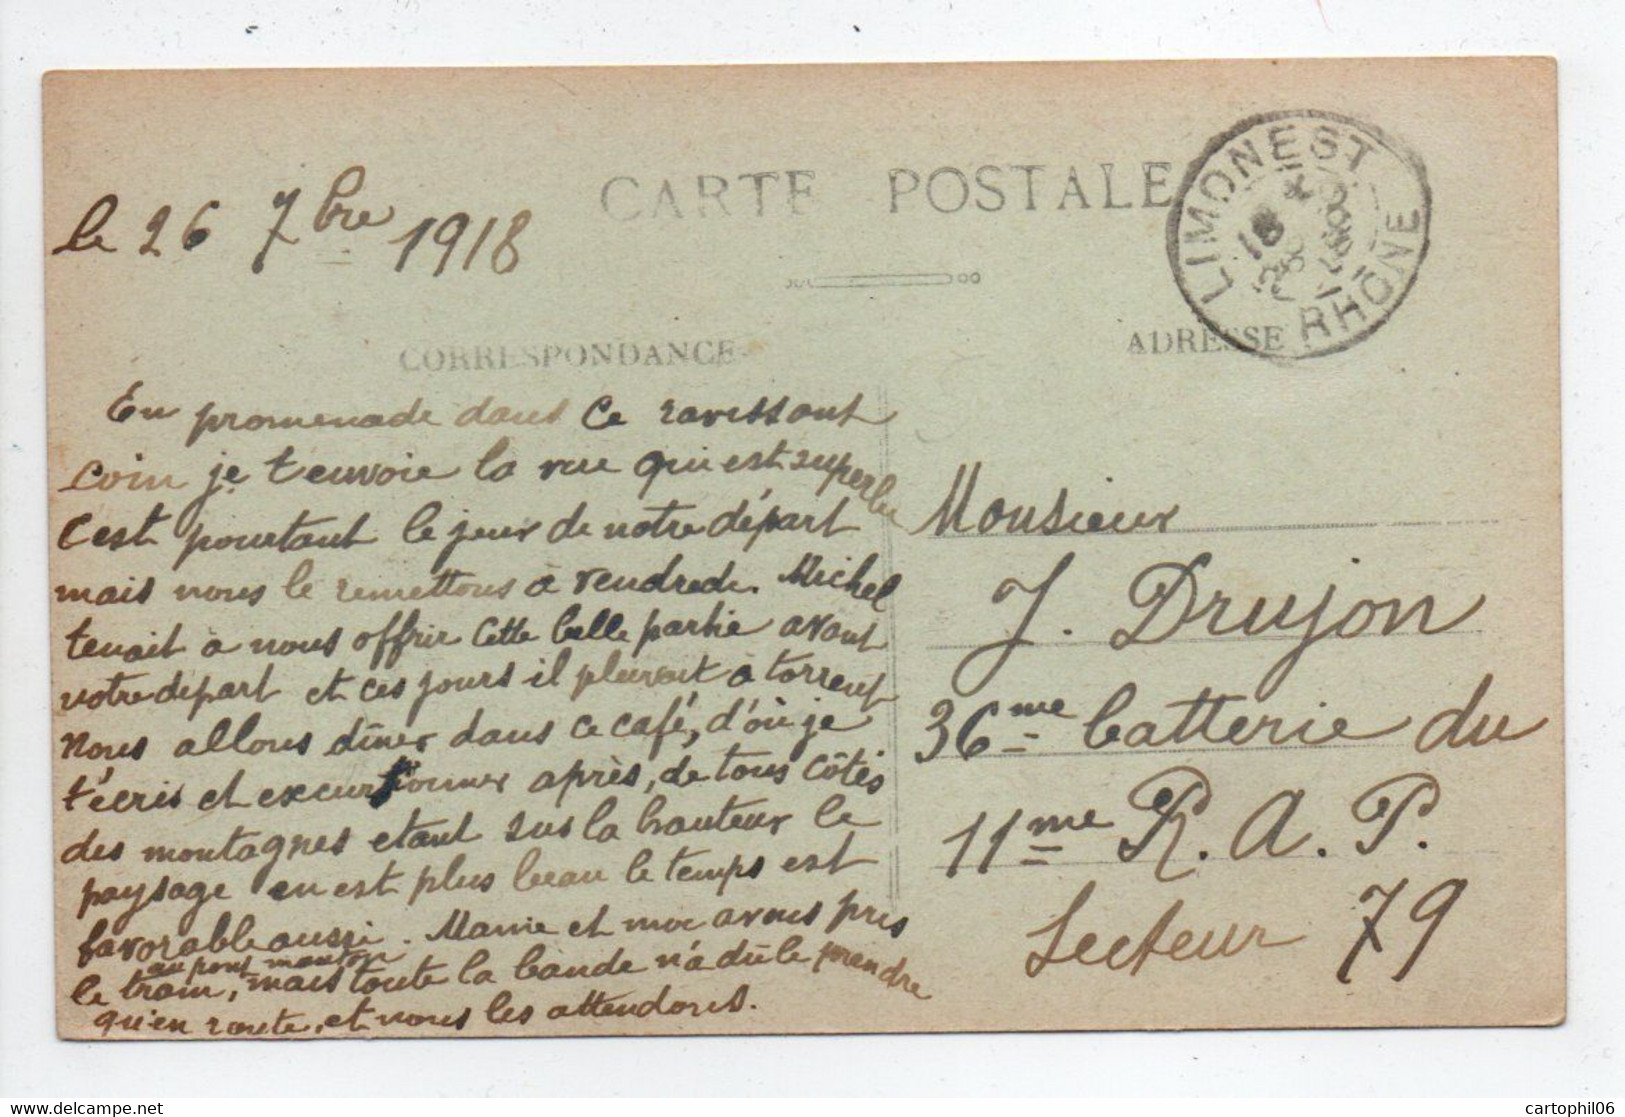 CARTE POSTALE
le 26 7bre 1918
LIMONEST
RHONE
18
CORRESPONDANCE
ADRESSE
En promenade dans ce ravissant
coin je t'envoie la vue qui est superbe
C'est pourtant le jour de notre départ
mais nous le remettons à vendredi. Michel
tenait a nous offrir cette belle partie avant
notre depart et ces jours il pleuvait à torrent
Nous allons dîner dans ce café, d'où je
t'écris et excursionner après, de tous côtés
des montagnes etant sus la hauteur le
paysage en est plus beau le temps est
favorable aussi. Mame et moi avons pris
au pont mouton
le tram, mais toute la bande n'a dû le prendre
qu'en route, et nous les attendons.
Monsieur
J. Drujon
36me batterie du
11me R. A. P.
Secteur 79
cartophil06